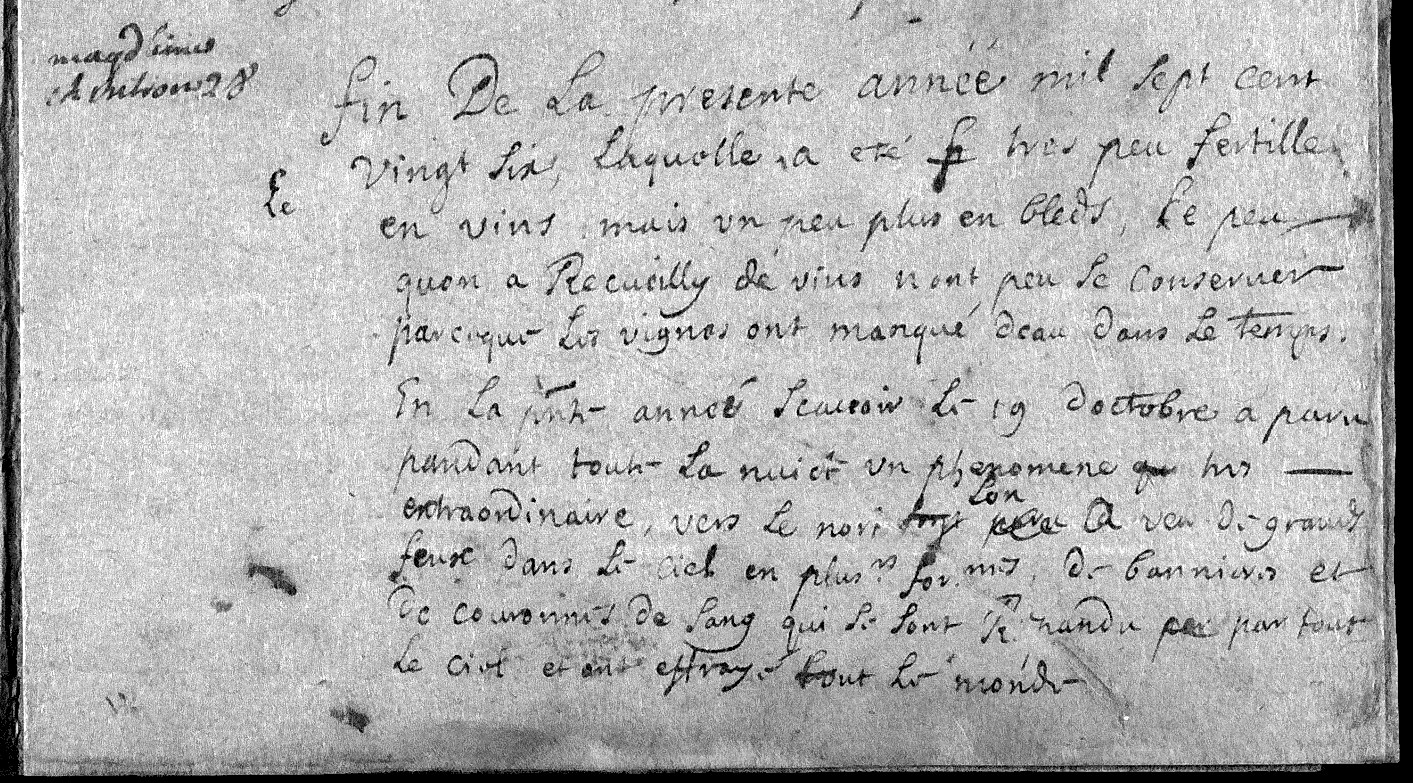 28
fin De La presente année mil sept cent
vingt six, Laquelle a eté tres peu fertille
Le
en vins mais vn peu plus en bleds, Le peu
quon a Recueilly de vins nont peu se conseruer
parceque Les vignes ont manqué deau dans Le temps.
En La pnte année scauoir Le 19 doctobre a paru
pandant toute La nuict vn phenomene tres
extraordinaire, vers Le nort Lon a veu de grands
feux dans Le ciel en plusrs formes, de bannieres et
De couronnes de sang qui se sont Repandu par tout
Le ciel et ont effrayé tout Le monde